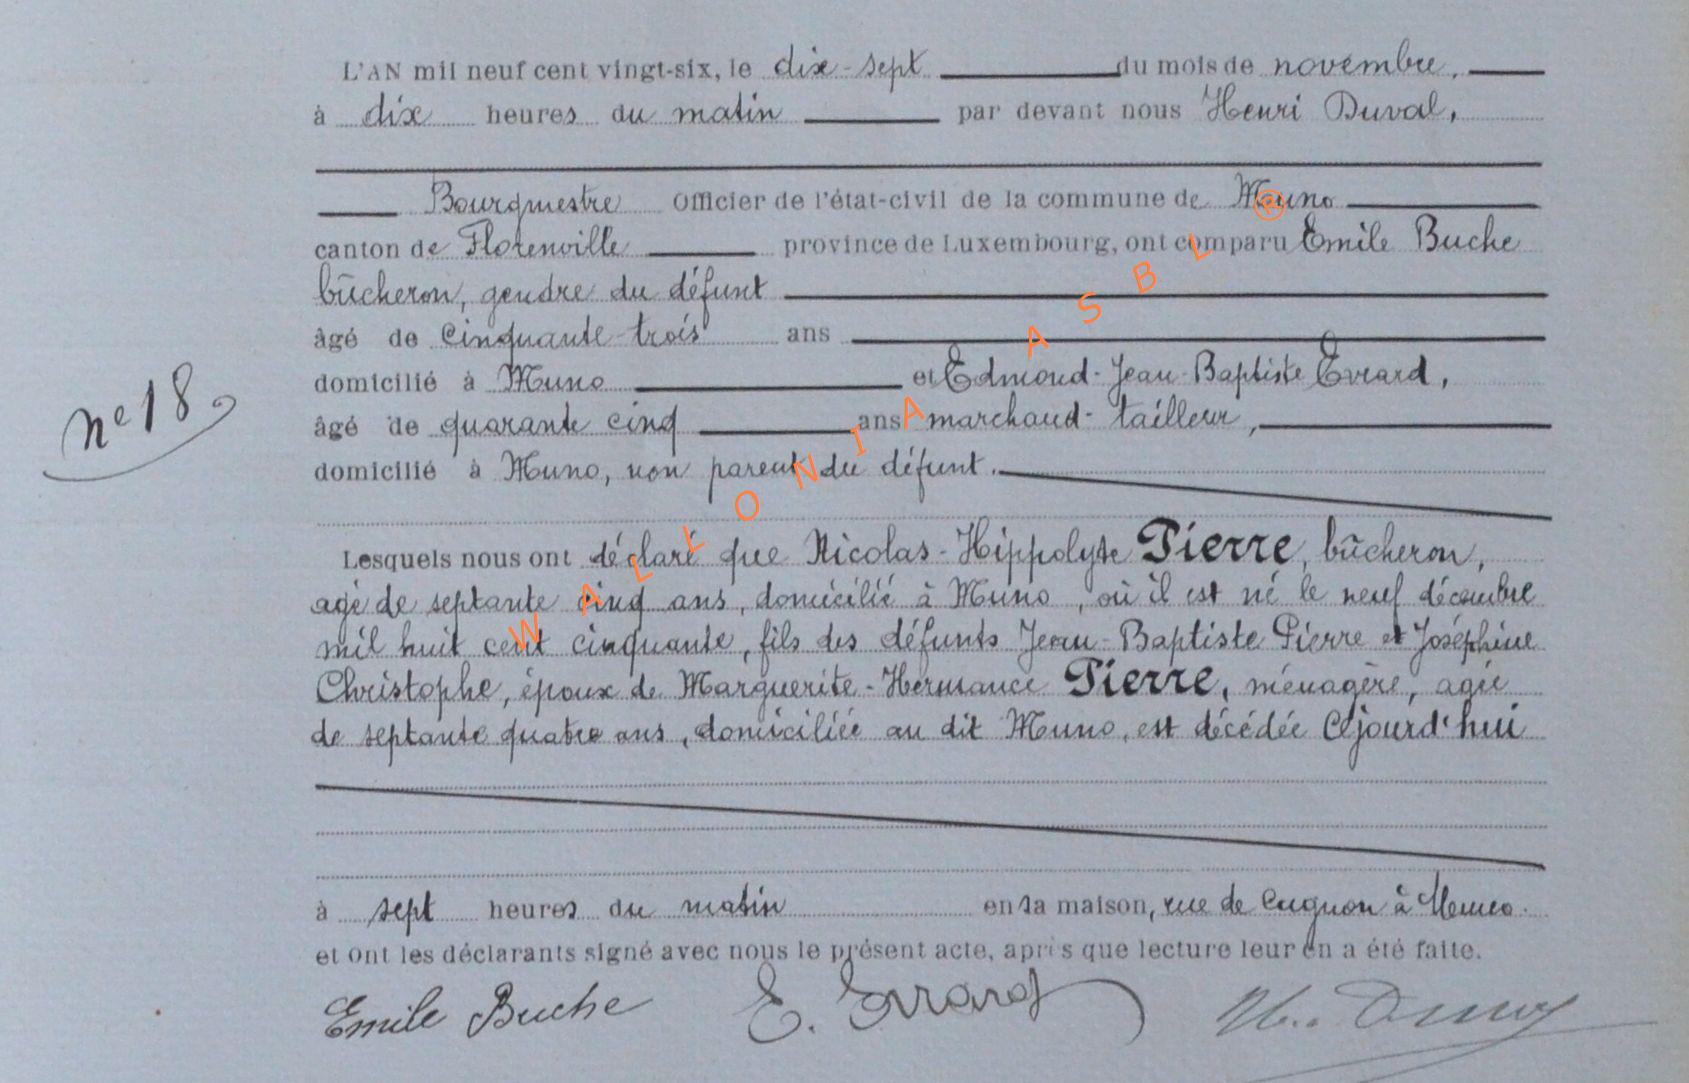 L'AN mil neuf cent vingt-six, le dix-sept du mois de novembre,
à dix heures du matin par devant nous Henri Duval,
Bourgmestre Officier de l'état-civil de la commune de Muno
canton de Florenville province de Luxembourg, ont comparu Emile Buche
bûcheron, gendre du défunt
âgé de cinquante-trois ans
domicilié à Muno et Edmond-Jean-Baptiste Evrard,
âgé de quarante cinq ans marchand-tailleur,
domicilié à Muno, non parent du défunt.
nº 18
Lesquels nous ont déclaré que Nicolas-Hippolyte Pierre, bûcheron,
agé de septante cinq ans, domicilié à Muno, où il est né le neuf décembre
mil huit cent cinquante, fils des défunts Jean-Baptiste Pierre et Joséphine
Christophe, époux de Marguerite-Hermance Pierre, ménagère, agée
de septante quatre ans, domiciliée au dit Muno, est décédée Cejourd'hui
à sept heures du matin en sa maison, rue de Cugnon à Muno.
et ont les déclarants signé avec nous le présent acte, après que lecture leur en a été faite.
Emile Buche E. Evrard H. Duval
WALLONIA ASBL ®